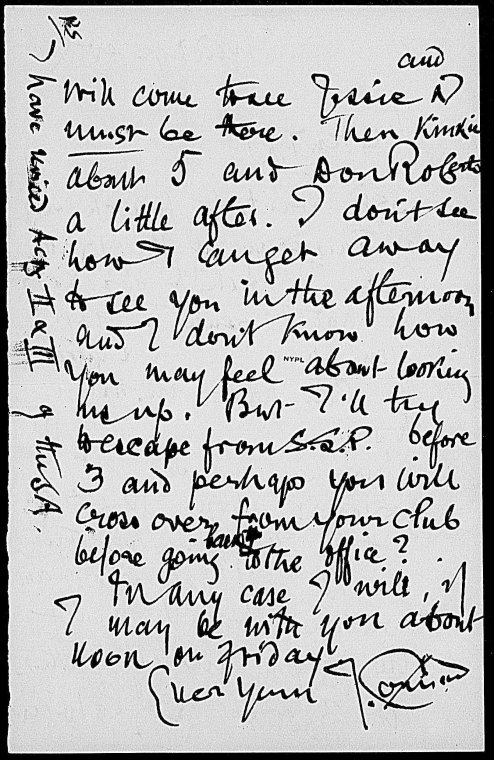 and
will come to see Jessie I
must be there. Then
about 5 and Don Roberto
a little after. I don't see
how I can get away
to see you in the afternoon
and I don't know how
you may feel about looking
NYPL
me up. But I'll try
to escape from S.S.P. before
3 and perhaps you will
cross over from your club
before going back to the office?
In any case I will, if
I may be with you about
noon on Friday
Ever yours
J. Conrad
PS
I have Acts II & III of the S.A.